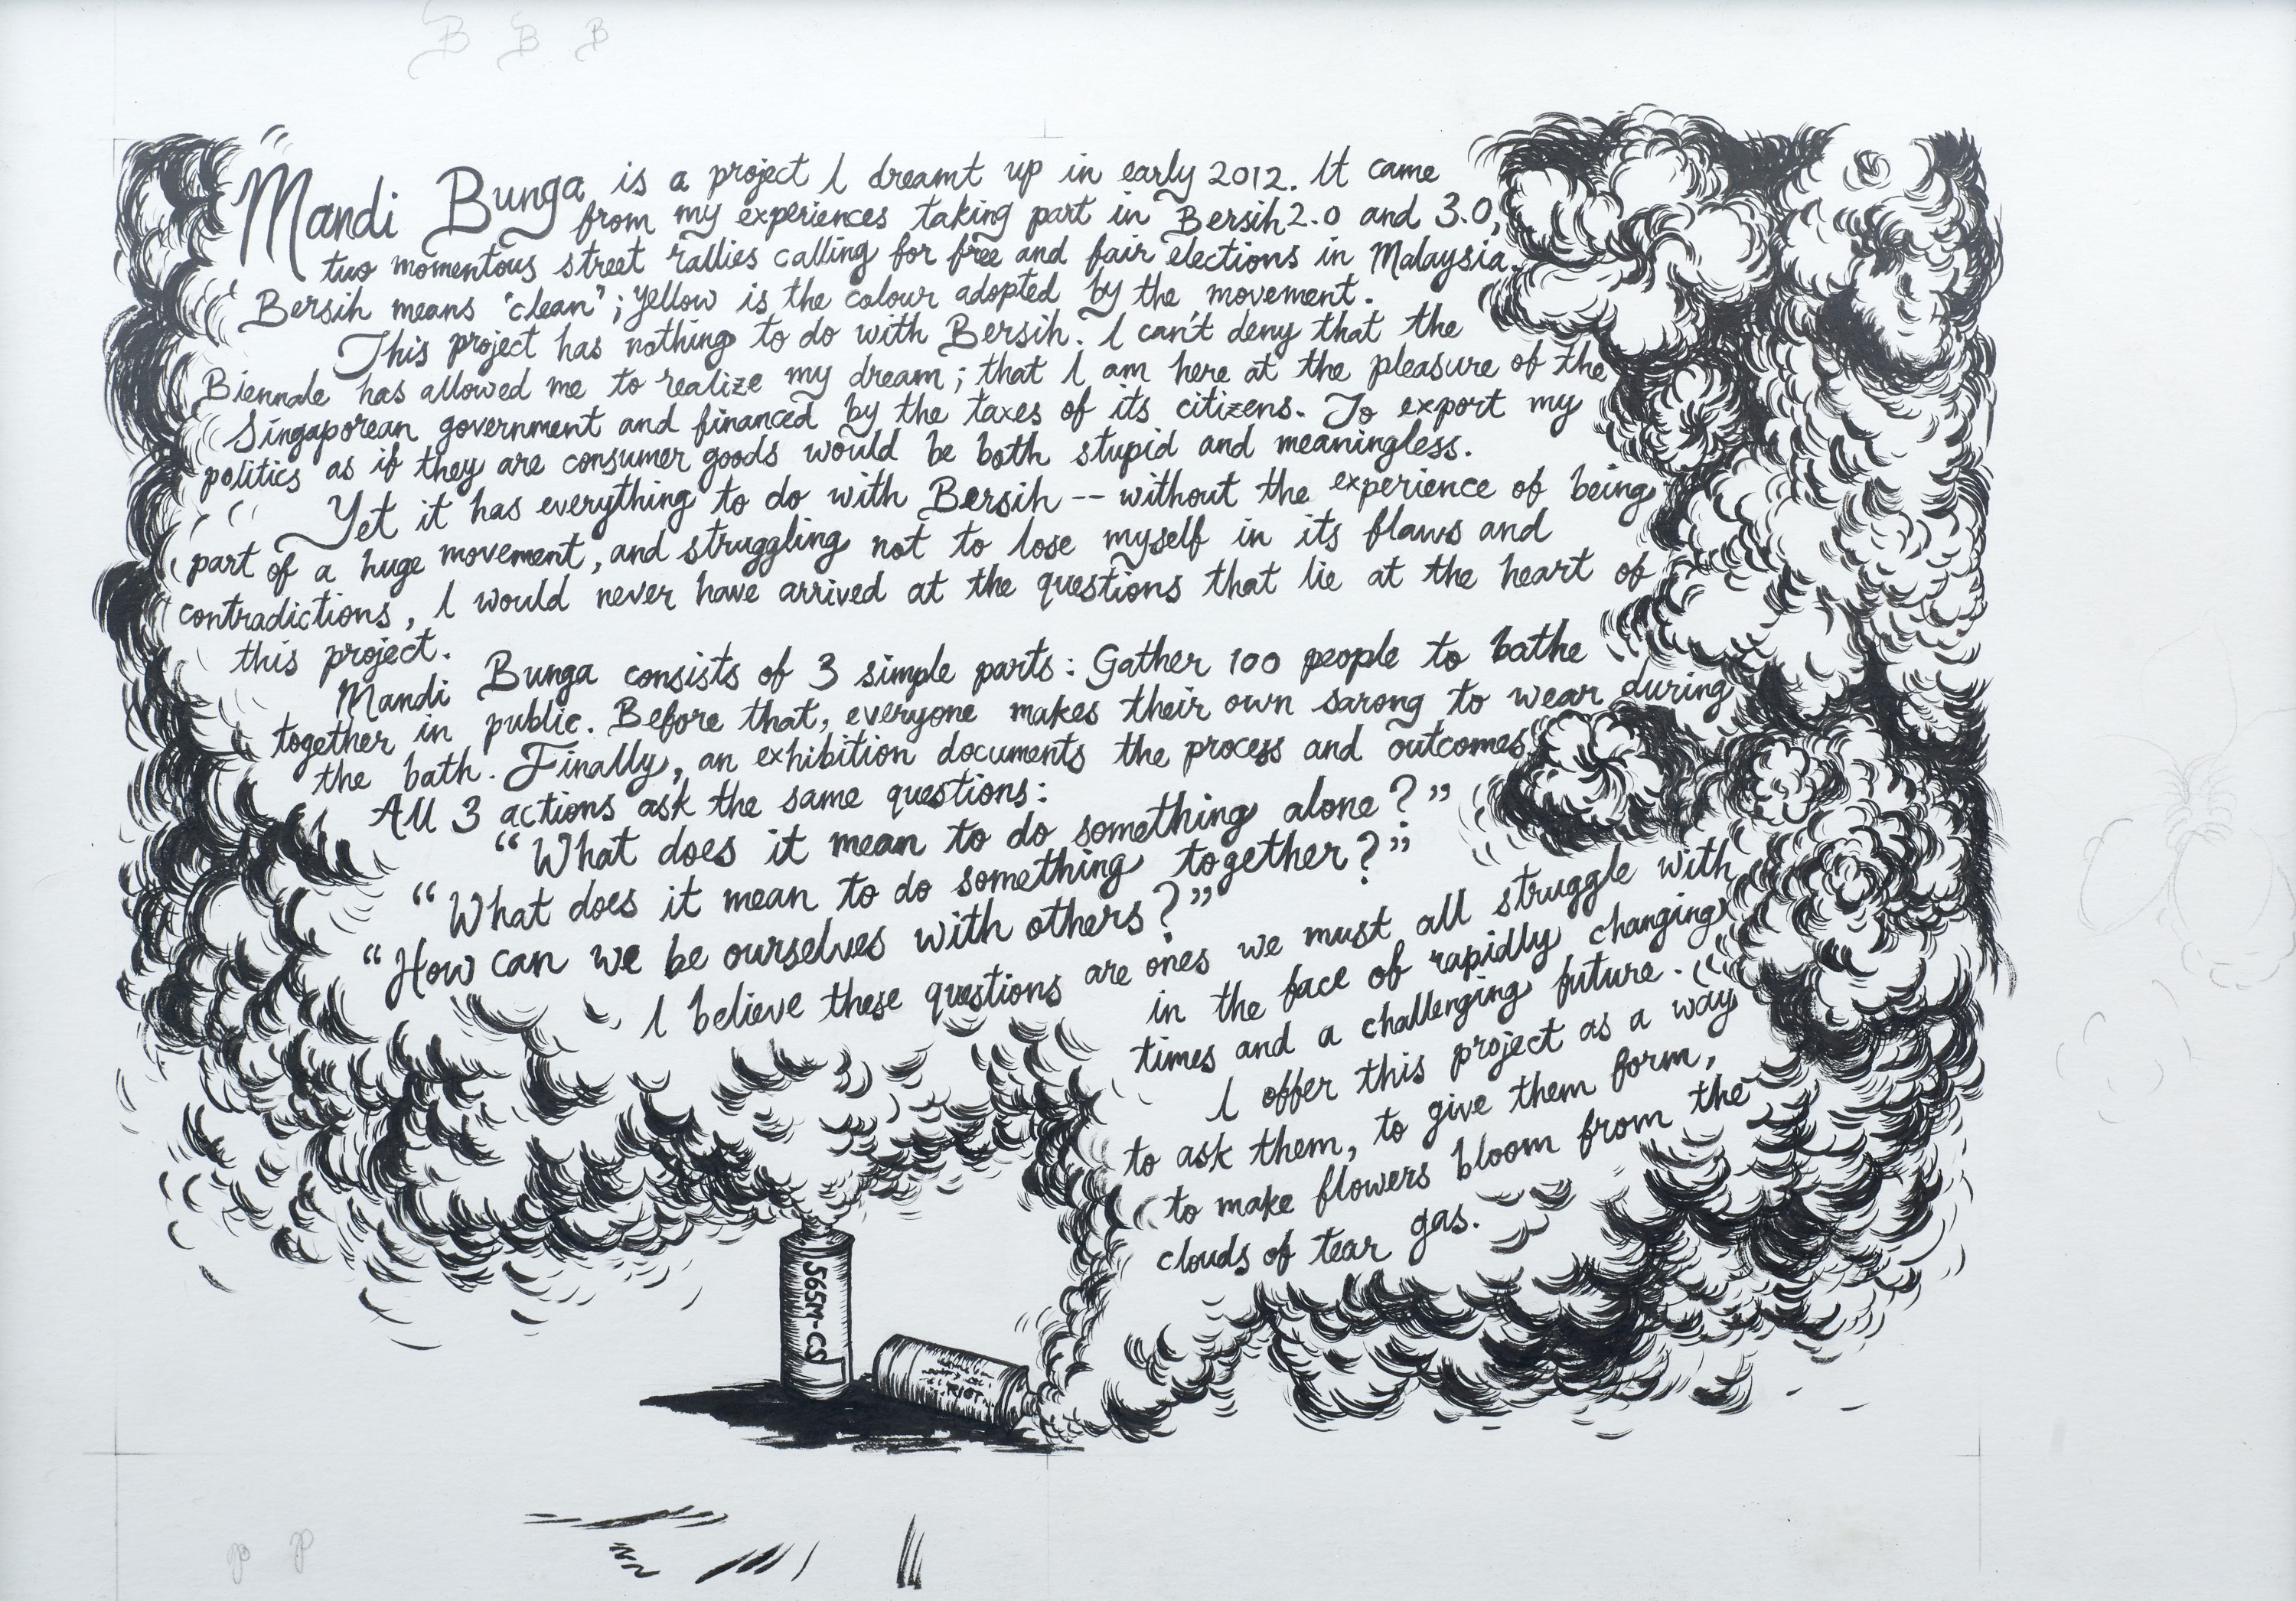 B B B
Mandi Bunga is a project I dreamt up in early 2012. It came
from my experiences taking part in Bersih 2.0 and 3.0,
two momentous street rallies calling for free and fair elections in Malaysia.
Bersih means 'clean'; yellow is the colour adopted by the movement.
This project has nothing to do with Bersih. I can't deny that the
Biennale has allowed me to realize my dream; that I am here at the pleasure of the
Singaporean government and financed by the taxes of its citizens. To export my
politics as if they are consumer goods would be both stupid and meaningless.
Yet it has everything to do with Bersih -- without the experience of being
part of a huge movement, and struggling not to lose myself in its flaws and
contradictions, I would never have arrived at the questions that lie at the heart of
this project.
Mandi Bunga consists of 3 simple parts: Gather 100 people to bathe
together in public. Before that, everyone makes their own sarong to wear during
the bath. Finally, an exhibition documents the process and outcomes.
All 3 actions ask the same questions:
"What does it mean to do something alone?"
"What does it mean to do something together?"
"How can we be ourselves with others?"
I believe these questions are ones we must all struggle with
in the face of rapidly changing
times and a challenging future.
I offer this project as a way
to ask them, to give them form,
to make flowers bloom from the
clouds of tear gas.
565M-CS
RIOT
P P